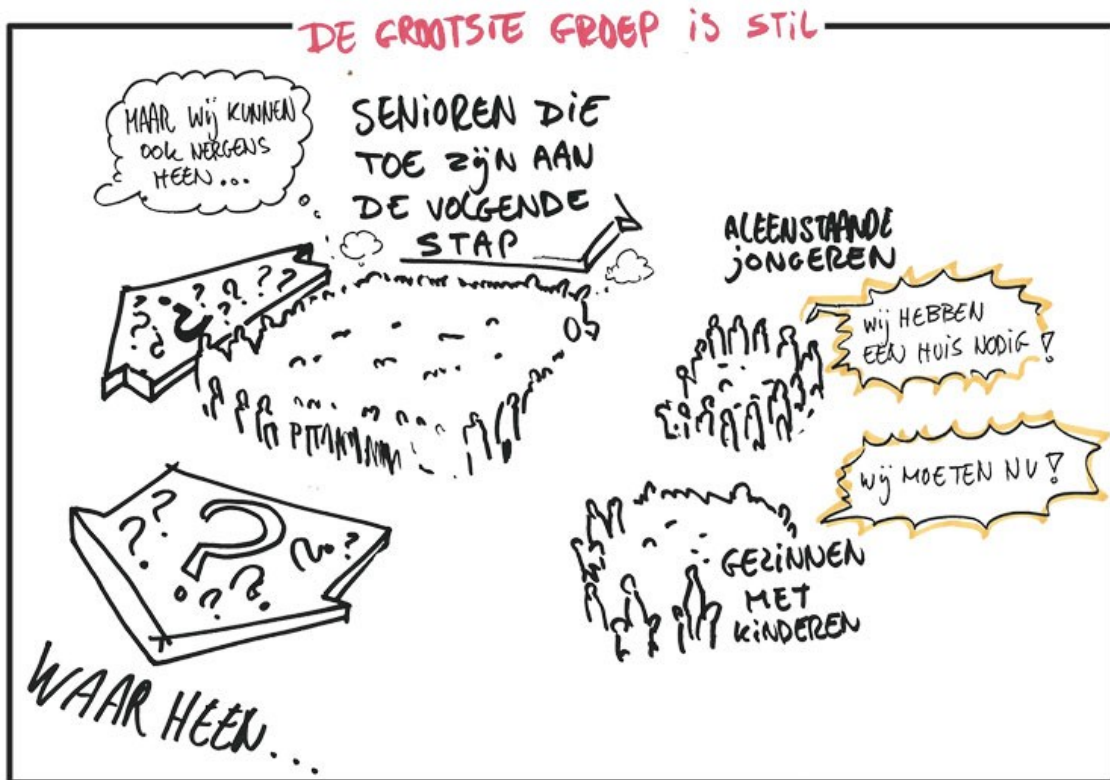 DE GROOTSTE GROEP IS STIL
MAAR WIJ KUNNEN
OOK NERGENS
HEEN...
SENIOREN DIE
TOE ZIJN AAN
DE VOLGENDE
STAP
ALEENSTAANDE
JONGEREN
WIJ HEBBEN
EEN HUIS NODIG!
WIJ MOETEN NU!
GEZINNEN
MET
KINDEREN
? ? ? ? ? ? ? ?
? ? ? ? ? ? ?
WAAR HEEN...